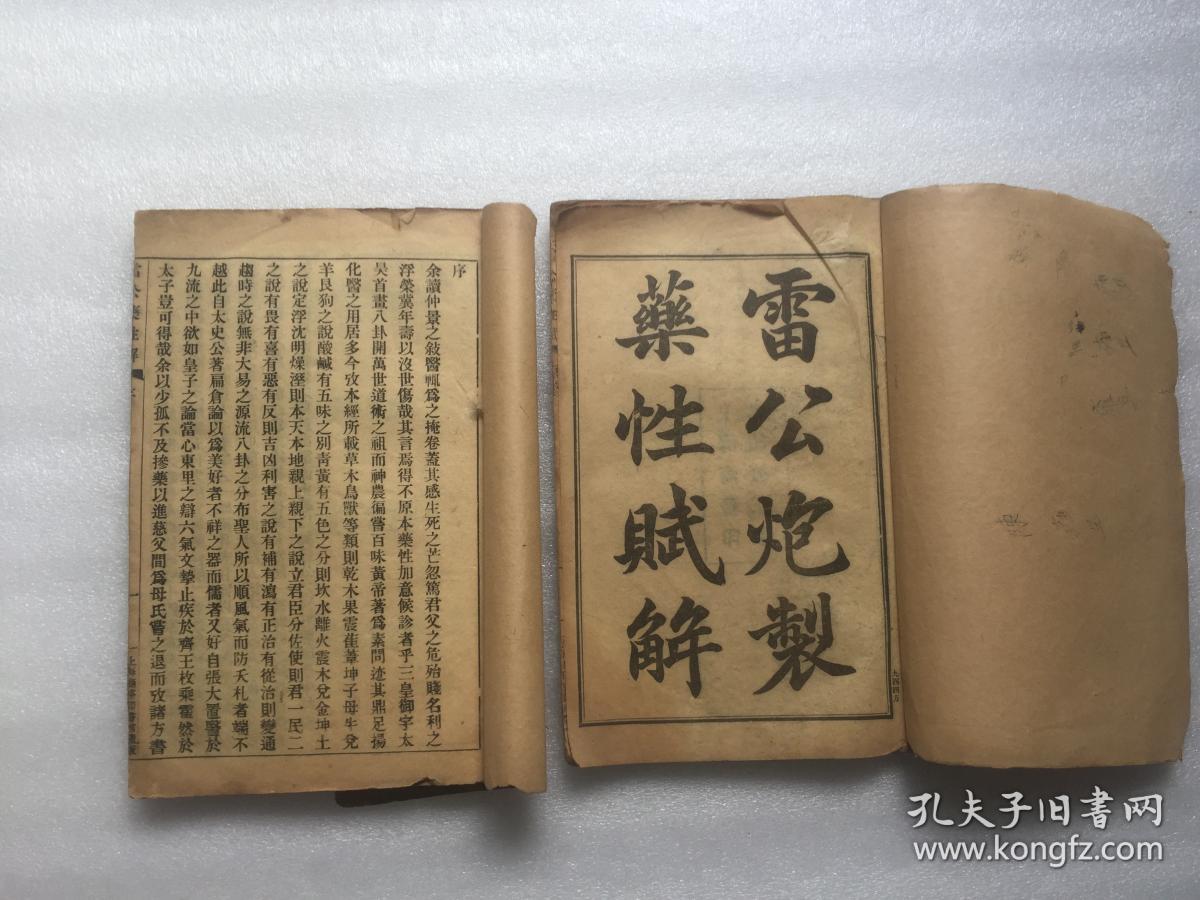 序
余讀仲景之敍醫輒爲之掩卷蓋其感生死之芒忽篤君父之危殆賤名利之
浮榮冀年壽以沒世傷哉其言焉得不原本藥性加意候診者乎三皇御宇太
昊首畫八卦開萬世道術之祖而神農徧嘗百味黃帝著爲素問迹其鼎足揚
化醫之用居多今攷本經所載草木鳥獸等類則乾木果震萑葦坤子母牛兌
羊艮狗之說酸鹹有五味之別靑黃有五色之分則坎水離火震木兌金坤土
之說定浮沈明燥溼則本天本地親上親下之說立君臣分佐使則君一民二
之說有畏有喜有惡有反則吉凶利害之說有補有瀉有正治有從治則變通
趨時之說無非大易之源流八卦之分布聖人所以順風氣而防夭札者端不
越此自太史公著扁倉論以爲美好者不祥之器而儒者又好自張大置醫於
九流之中欲如皇子之論當心東里之辯六氣文摯止疾於齊王枚乘霍然於
太子豈可得哉余以少孤不及摻藥以進慈父間爲母氏嘗之退而攷諸方書
雷公炮製
藥性賦解
孔夫子旧书网
www.kongfz.com